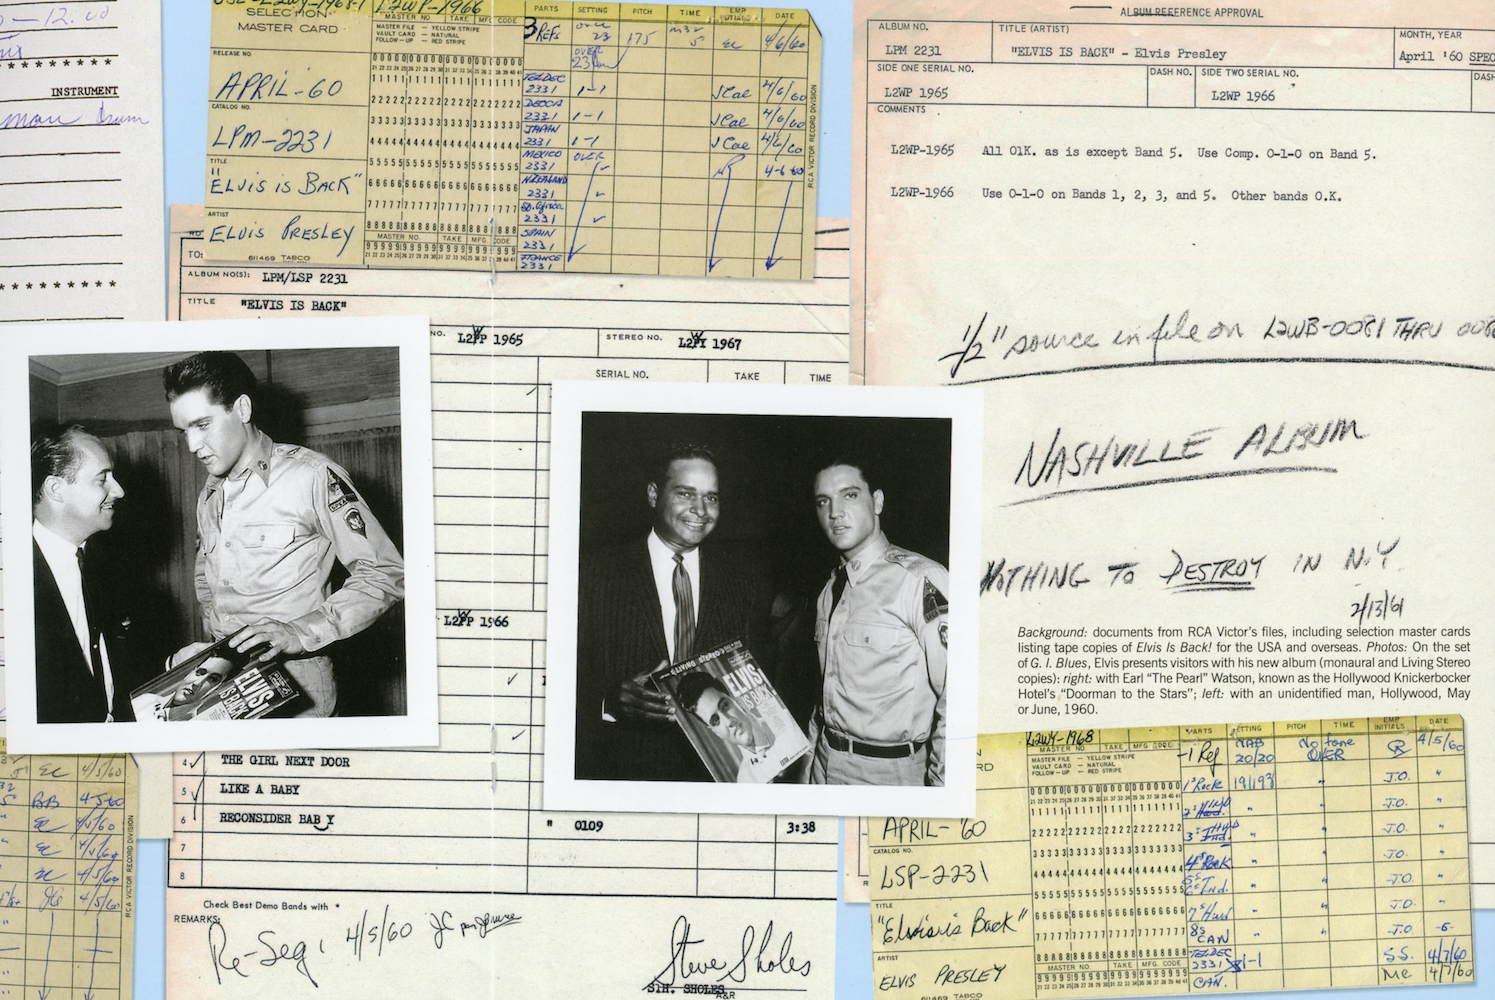 -12.00
INSTRUMENT
SELECTION
MASTER CARD
RELEASE NO.
APRIL-60
CATALOG NO.
LPM-2231
TITLE
"ELVIS IS BACK"
ARTIST
ELVIS PRESLEY
611469 TABCO
L2WP-1966
MASTER NO TAKE MFG CODE
MASTER FILE — YELLOW STRIPE
VAULT CARD — NATURAL
FOLLOW-UP — RED STRIPE
MASTER NO. TAKE MFG CODE
PARTS SETTING PITCH TIME EMP INITIALS DATE
3 REFS 23 175 EC 4/6/60
OVER
TELDEC
2331 1-1 JCal 4/6/60
DECCA
2331 1-1 JCal 4/6/60
JAPAN
2331 1-1 JCal 4/6/60
MEXICO OVER
2331 4-6-60
N.ZEALAND
2331
SO. Africa
2331
SPAIN
2331
FRANCE
2331
RCA VICTOR RECORD DIVISION
TO:
ALBUM NO(S): LPM/LSP 2231
TITLE "ELVIS IS BACK"
NO. L2WP 1965 STEREO NO. L2WY 1967
SERIAL NO. TAKE TIME
L2WP 1966
4 THE GIRL NEXT DOOR
5 LIKE A BABY
6 RECONSIDER BABY " 0109 3:38
7
8
Check Best Demo Bands with *
REMARKS:
Re-Seq: 4/5/60
Steve Sholes
S.H. SHOLES
A&R
ALBUM REFERENCE APPROVAL
ALBUM NO. TITLE (ARTIST) MONTH, YEAR
LPM 2231 "ELVIS IS BACK" - Elvis Presley April '60 SPEC
SIDE ONE SERIAL NO. DASH NO. SIDE TWO SERIAL NO. DASH
L2WP 1965 L2WP 1966
COMMENTS
L2WP-1965 All O1K. as is except Band 5. Use Comp. 0-1-0 on Band 5.
L2WP-1966 Use 0-1-0 on Bands 1, 2, 3, and 5. Other bands O.K.
1/2" source in file on L2WB-0081 THRU
NASHVILLE ALBUM
NOTHING TO DESTROY IN N.Y.
2/13/61
Background: documents from RCA Victor's files, including selection master cards
listing tape copies of Elvis Is Back! for the USA and overseas. Photos: On the set
of G. I. Blues, Elvis presents visitors with his new album (monaural and Living Stereo
copies): right: with Earl "The Pearl" Watson, known as the Hollywood Knickerbocker
Hotel's "Doorman to the Stars"; left: with an unidentified man, Hollywood, May
or June, 1960.
ELVIS
IS BACK!
ELVIS
IS BACK!
EC 4/5/60
BB 4-5-60
EC 4/5/60
EC 4/5/60
4/5/60
4/5/60
RCA VICTOR RECORD DIVISION
RD
APRIL-'60
CATALOG NO.
LSP-2231
TITLE
"Elvis is Back"
ARTIST
ELVIS PRESLEY
611469 TABCO
L2WY-1968
MASTER NO TAKE MFG CODE
MASTER FILE — YELLOW STRIPE
VAULT CARD — NATURAL
FOLLOW-UP — RED STRIPE
MASTER NO. TAKE MFG. CODE
PARTS SETTING PITCH TIME EMP INITIALS DATE
-1 Ref NAB 20/20 No tone OVER 4/5/60
1s Rock 19/19 J.O. "
2s Hwd. " J.O. "
3s Ind. " J.O. "
4s Rock " J.O. "
Ind. " J.O. "
7s Hwd " J.O. "
8s CAN " J.O. -5-
TELDEC
2331 1-1 S.S. 4/7/60
CAN. Me 4/7/60